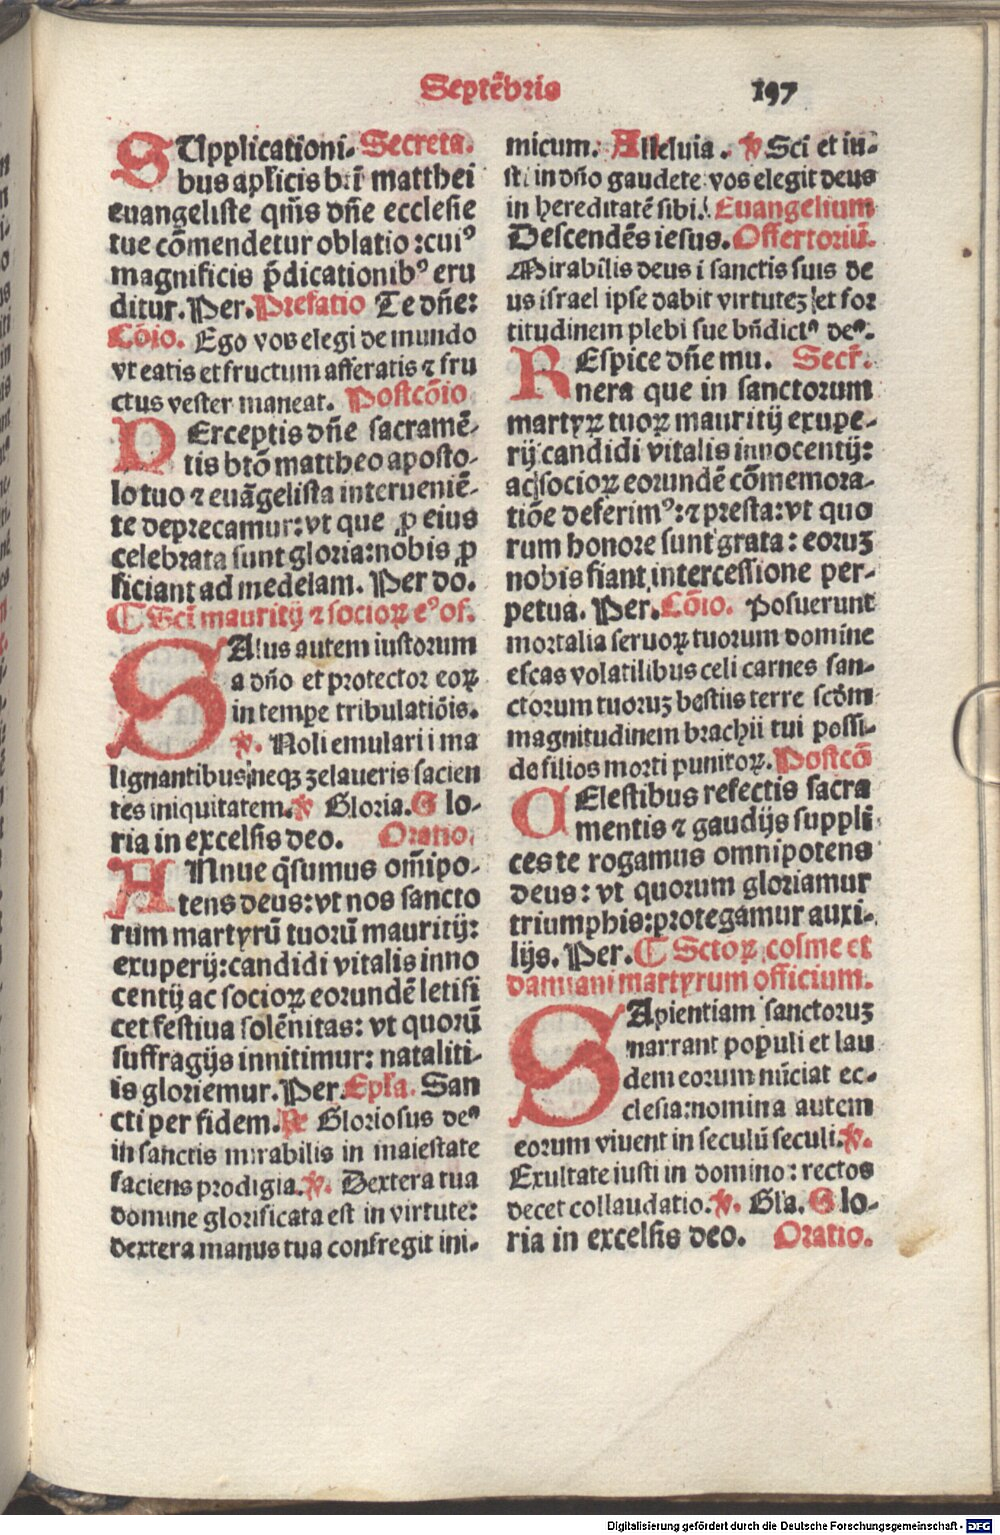 Septēbris 197
SUpplicationi- Secreta.
bus aplicis bti matthei
euangeliste qm̄s dn̄e ecclesie
tue cōmendetur oblatio :cuiꝰ
magnificis p̄dicationibꝰ eru
ditur. Per. Prefatio Te dn̄e:
Cōio. Ego vos elegi de mundo
vt eatis et fructum afferatis ⁊ fru
ctus vester maneat. Postcōio
PErceptis dn̄e sacramē-
tis btō mattheo aposto-
lo tuo ⁊ euāgelista interueniē-
te deprecamur: vt que ꝓ eius
celebrata sunt gloria: nobis ꝓ
ficiant ad medelam. Per do.
¶ Scti mauritij ⁊ socioꝝ eꝰ of.
SAlus autem iustorum
a dn̄o et protector eoꝝ
in tempe tribulatiōis.
℣. Noli emulari i ma
lignantibus neqꝫ zelaueris facien
tes iniquitatem. ℣ Gloria. Glo-
ria in excelsis deo. Oratio.
ANnue q̄sumus om̄ipo-
tens deus: vt nos sancto
rum martyrū tuorū mauritij:
exuperij: candidi vitalis inno
centij ac socioꝝ eorundē letifi
cet festiua solēnitas: vt quorū
suffragijs innitimur: nataliti-
is gloriemur. Per. Epła. San
cti per fidem. ℟ Gloriosus deꝰ
in sanctis mirabilis in maiestate
faciens prodigia. ℣. Dextera tua
domine glorificata est in virtute:
dextera manus tua confregit ini-
micum. Alleluia. ℣ Sci et iu-
sti in dn̄o gaudete vos elegit deus
in hereditatē sibi. Euangelium
Descendēs iesus. Offertoriū.
Mirabilis deus i sanctis suis de
us israel ipse dabit virtutez et for
titudinem plebi sue bn̄dictꝰ deꝰ.
REspice dn̄e mu. Secr̄.
nera que in sanctorum
martyꝝ tuoꝝ mauritij exupe-
rij candidi vitalis innocentij:
ac socioꝝ eorundē cōmemora-
tiōe deferimꝰ: ⁊ presta: vt quo
rum honore sunt grata: eoruꝫ
nobis fiant intercessione per-
petua. Per. Cōio. Posuerunt
mortalia seruoꝝ tuorum domine
escas volatilibus celi carnes san-
ctorum tuoruꝫ bestiis terre scd̄m
magnitudinem brachij tui possi-
de filios morti punitoꝝ. Postcō
CElestibus refectis sacra
mentis ⁊ gaudijs suppli
ces te rogamus omnipotens
deus: vt quorum gloriamur
triumphis: protegamur auxi-
lijs. Per. ¶ Sctoꝝ cosme et
damiani martyrum officium.
SApientiam sanctoruꝫ
narrant populi et lau
dem eorum nūciat ec-
clesia: nomina autem
eorum viuent in seculū seculi. ℣.
Exultate iusti in domino: rectos
decet collaudatio. ℣. Gla. Glo-
ria in excelsis deo. Oratio.
Digitalisierung gefördert durch die Deutsche Forschungsgemeinschaft - DFG